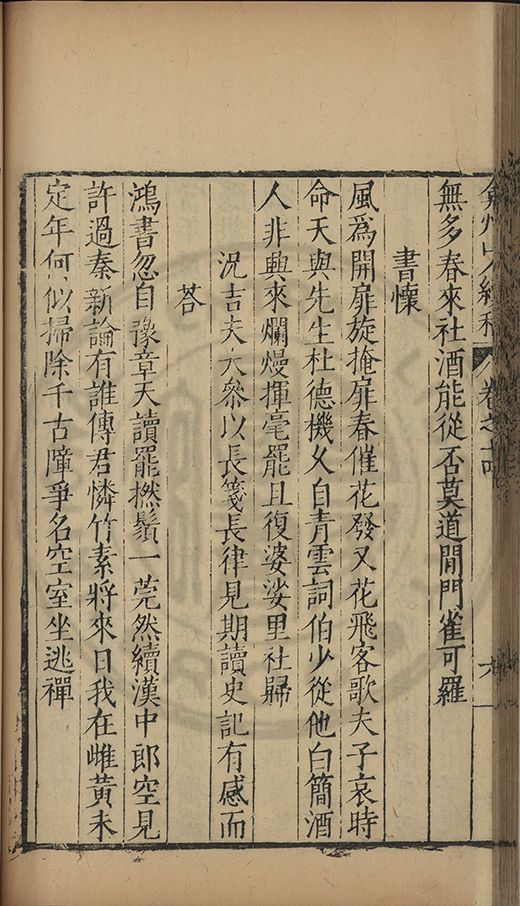 弇州山人續稿 卷之十 六
無多春來社酒能從否莫道閒門雀可羅
書懷
風爲開扉旋掩扉春催花發又花飛客歌夫子哀時
命天與先生杜德機幺自青雲詞伯少從他白簡酒
人非興來爛熳揮毫罷且復婆娑里社歸
況吉夫大參以長箋長律見期讀史記有感而
荅
鴻書忽自豫章天讀罷撚鬚一莞然續漢中郎空見
許過秦新論有誰傳君憐竹素將來日我在雌黃未
定年何似掃除千古障爭名空室坐逃禪